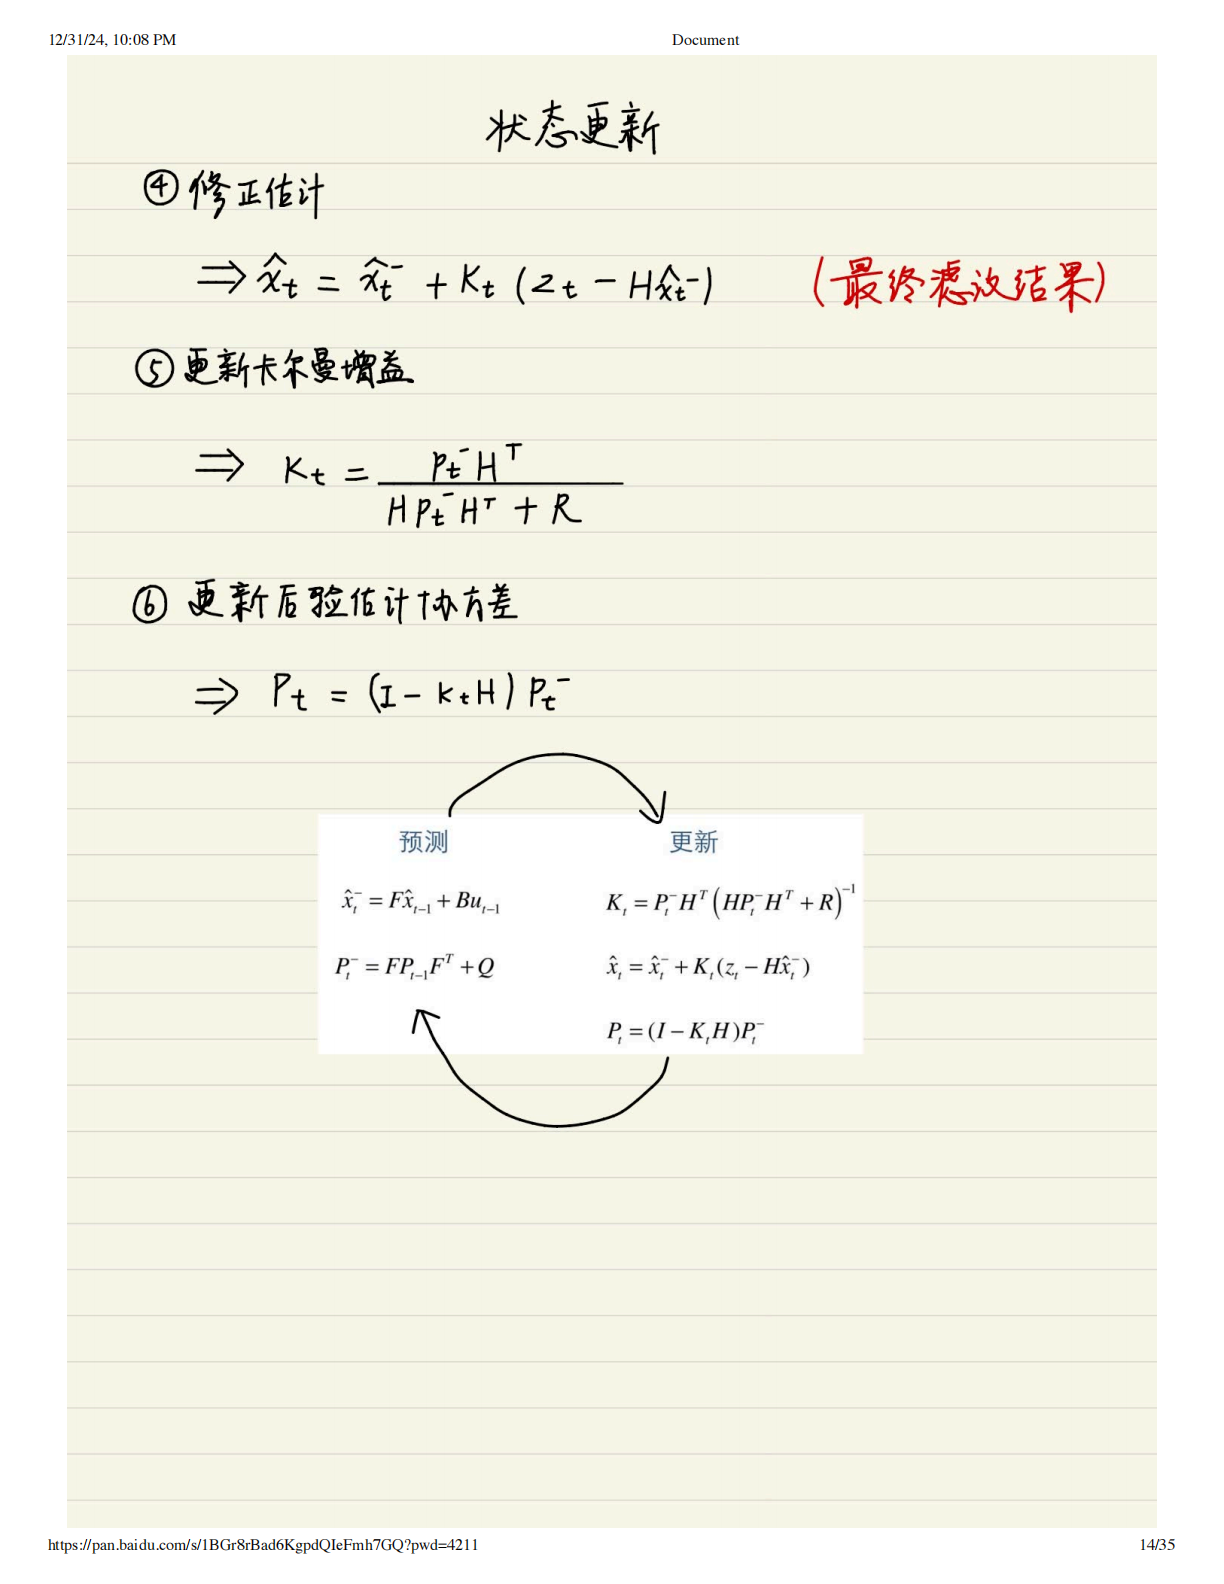 12/31/24, 10:08 PM Document
状态更新
④ 修正估计
⇒ x̂ₜ = x̂ₜ⁻ + Kₜ (zₜ − Hx̂ₜ⁻) (最终滤波结果)
⑤ 更新卡尔曼增益
⇒ Kₜ = Pₜ⁻Hᵀ
HPₜ⁻Hᵀ + R
⑥ 更新后验估计协方差
⇒ Pₜ = (I − KₜH) Pₜ⁻
预测 更新
x̂ₜ⁻ = Fx̂ₜ₋₁ + Buₜ₋₁ Kₜ = Pₜ⁻Hᵀ(HPₜ⁻Hᵀ + R)⁻¹
Pₜ⁻ = FPₜ₋₁Fᵀ + Q x̂ₜ = x̂ₜ⁻ + Kₜ(zₜ − Hx̂ₜ⁻)
Pₜ = (I − KₜH)Pₜ⁻
https://pan.baidu.com/s/1BGr8rBad6KgpdQIeFmh7GQ?pwd=4211 14/35